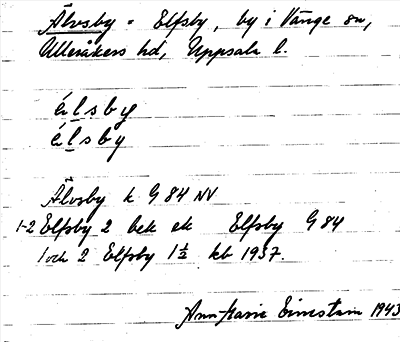 Älvsby = Elfsby, by i Vänge sn,
Ulleråkers hd, Uppsala l.
élsby
élsby
Älvsby k G 84 NV
1-2 Elfsby 2 bek ek Elfsby G 84
1 och 2 Elfsby 1½ kb 1937.
Ann Marie 1943